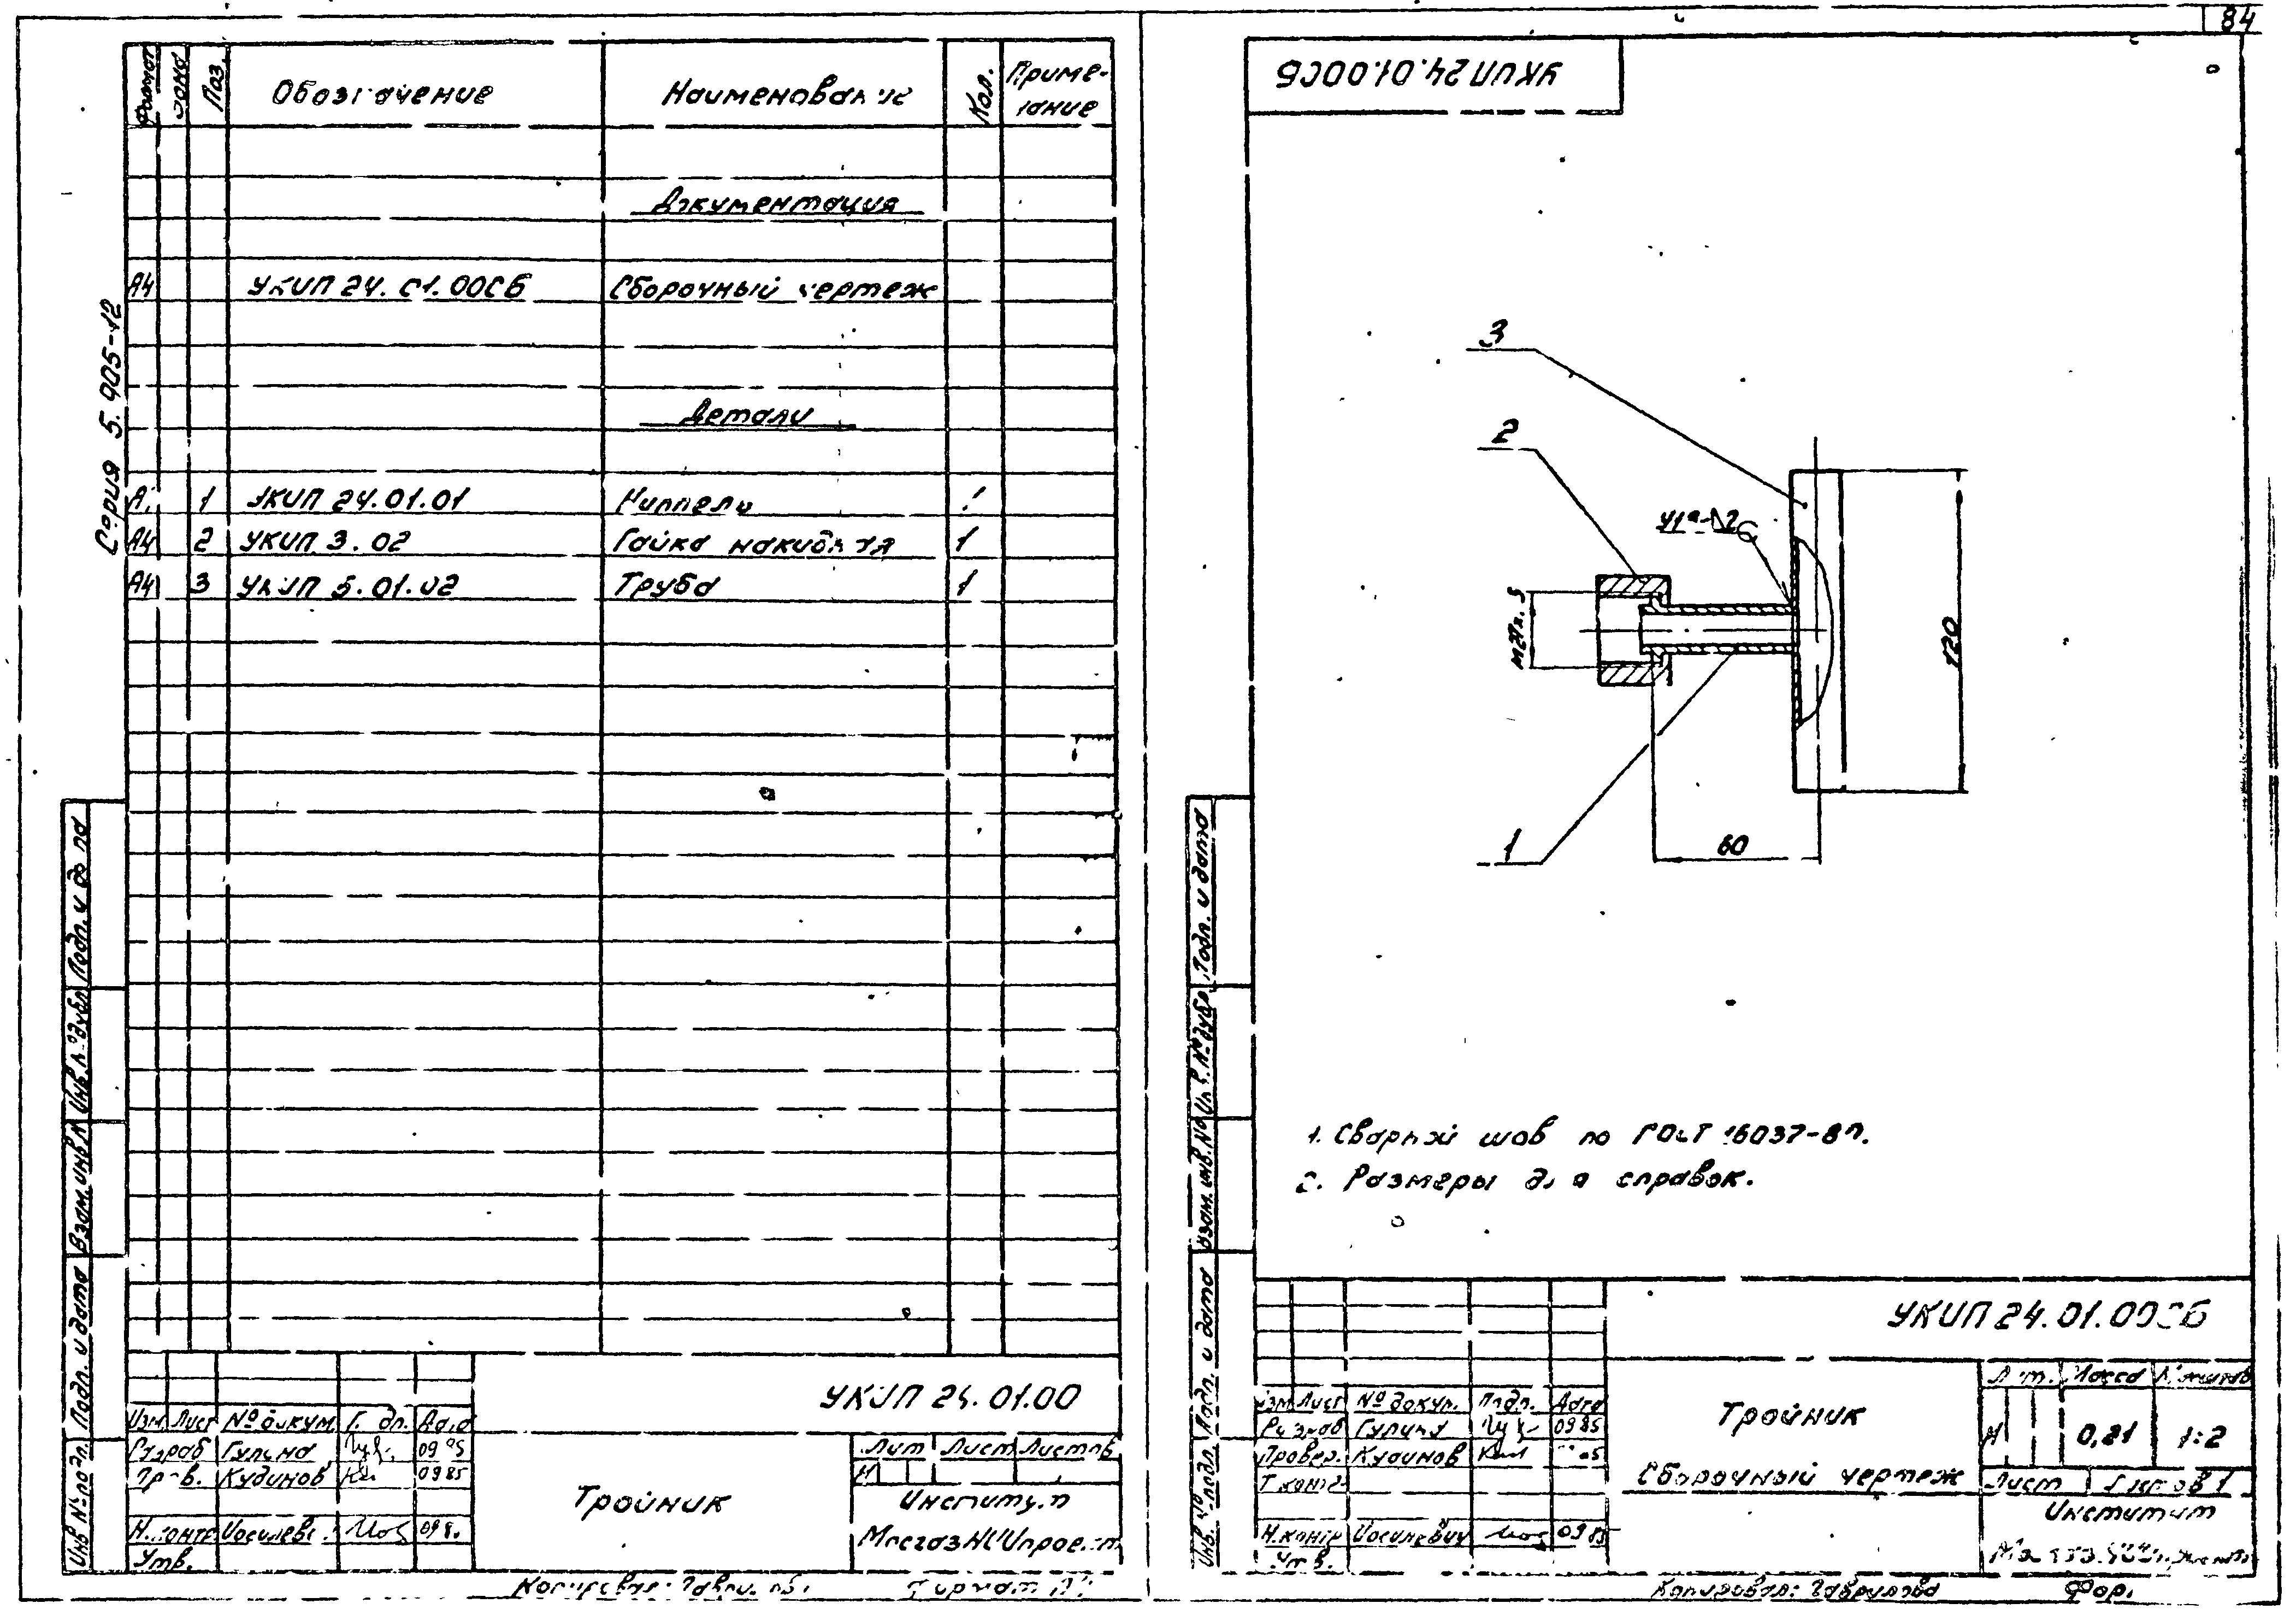 84
Формат Зона Поз. Обозначение Наименование Кол. Приме-
чание
Документация
А4 УКИП 24.01.00СБ Сборочный чертеж
Детали
1 УКИП 24.01.01 Ниппель 1
А4 2 УКИП 3.02 Гайка накидная 1
А4 3 УКИП 5.01.02 Труба 1
Серия 5.905-12
Подп. и дата
Инв.№дубл.
Взам.инв.№
Подп. и дата
Инв №подл.
УКИП 24.01.00
Изм Лист №докум. Подп. Дата
Разраб Гулина 09 85
Пров. Кудинов 09 85
Н.контр Иосилевич
Утв.
Тройник
Лит Лист Листов
И
Институт
МосгазНИИпроект
Копировал: Гаврилова Формат
УКИП 24.01.00СБ
3
2
У19-
120
1
60
1. Сварной шов по ГОСТ 16037-80.
2. Размеры для справок.
Подп. и дата
Инв.№дубл.
Взам.инв.№
Подп. и дата
Инв.№подл
УКИП 24.01.00СБ
Изм Лист №докум. Подп. Дата
Разраб Гулина 09 85
Провер. Кудинов
Т.контр
Н.контр Иосилевич 09 85
Утв.
Тройник
Сборочный чертеж
Лит. Масса Масштаб
И 0,21 1:2
Лист Листов 1
Институт
МосгазНИИпроект
Копировал: Гаврилова Фор.